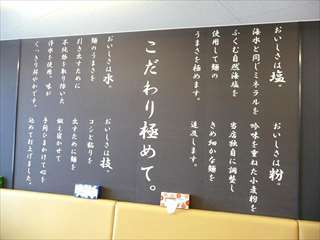 おいしさは塩。
海水と同じミネラルを
ふくむ自然海塩を
使用して麺の
うまさを極めます。
おいしさは粉。
吟味を重ねた小麦粉を
当店独自に調整し
きめ細かな麺を
追及します。
こだわり極めて。
おいしさは水。
麺のうまさを
引き出すために
不純物を取り除いた
浄水を使用。味が
くっきり鮮やかです。
おいしさは技。
コシと粘りを
出すために麺を
鍛え寝かせて
手間ひまかけて心を
込めて打上げました。